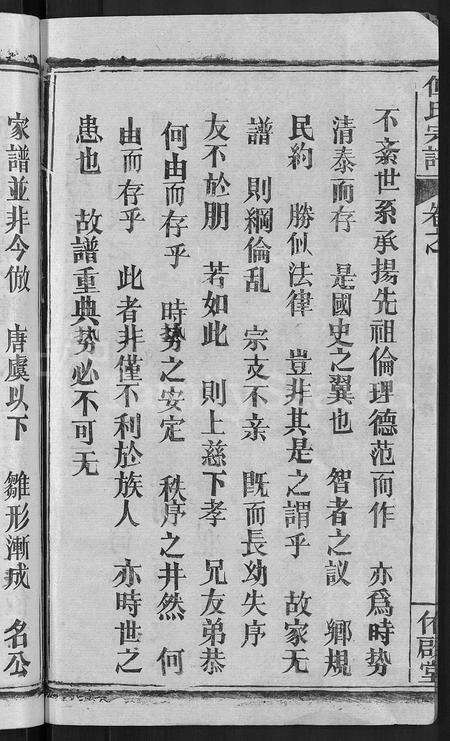 氏宗譜 卷之 堂
不紊世系承揚先祖倫理德范而作 亦爲時勢
清泰而存 是國史之翼也 智者之议 鄉規
民約 勝似法律 豈非其是之謂乎 故家无
譜 則綱倫乱 宗支不亲 既而長幼失序
友不於朋 若如此 則上慈下孝 兄友弟恭
何由而存乎 時勢之安定 秩序之井然 何
由而存乎 此者非僅不利於族人 亦時世之
患也 故譜重典勢必不可无
家譜並非今倣 唐虞以下 雛形漸成 名公